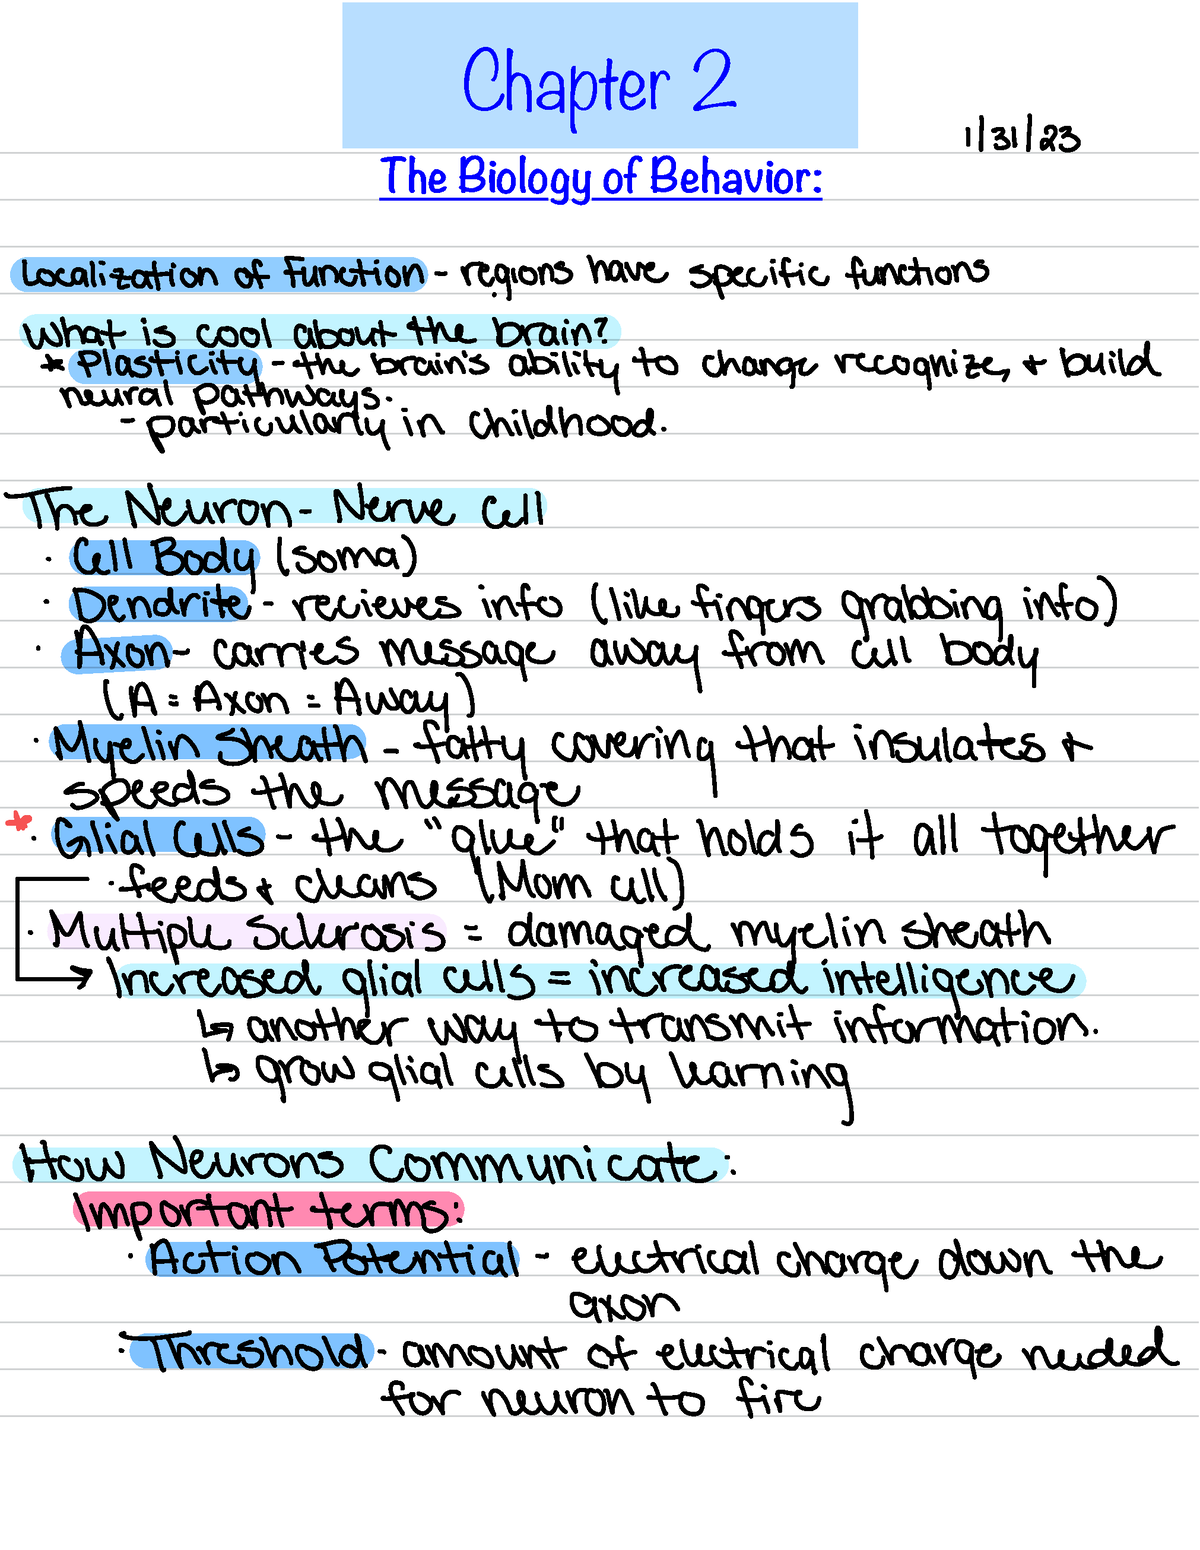 Chapter 2
1/31/23
The Biology of Behavior:
Localization of Function - regions have specific functions
What is cool about the brain?
* Plasticity - the brain's ability to change recognize, + build
neural pathways.
- particularly in childhood.
The Neuron - Nerve Cell
· Cell Body (soma)
· Dendrite - recieves info (like fingers grabbing info)
· Axon - carries message away from cell body
(A = Axon = Away)
· Myelin Sheath - fatty covering that insulates +
speeds the message
* · Glial Cells - the "glue" that holds it all together
· feeds + cleans (Mom cell)
· Multiple Sclerosis = damaged myelin sheath
→ Increased glial cells = increased intelligence
↳ another way to transmit information.
↳ grow glial cells by learning
How Neurons Communicate:
Important terms:
· Action Potential - electrical charge down the
axon
· Threshold - amount of electrical charge needed
for neuron to fire